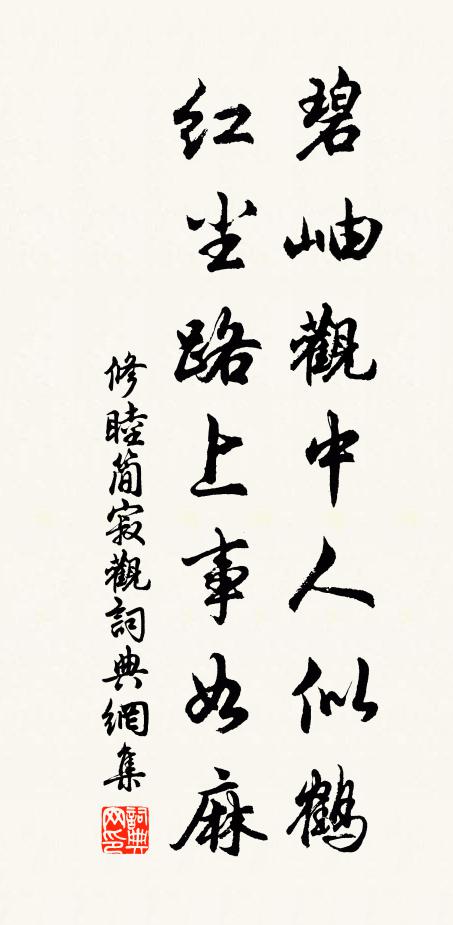 碧岫觀中人似鶴
红尘路上事如麻
修睦简寂觀詞典網集
詞典网印